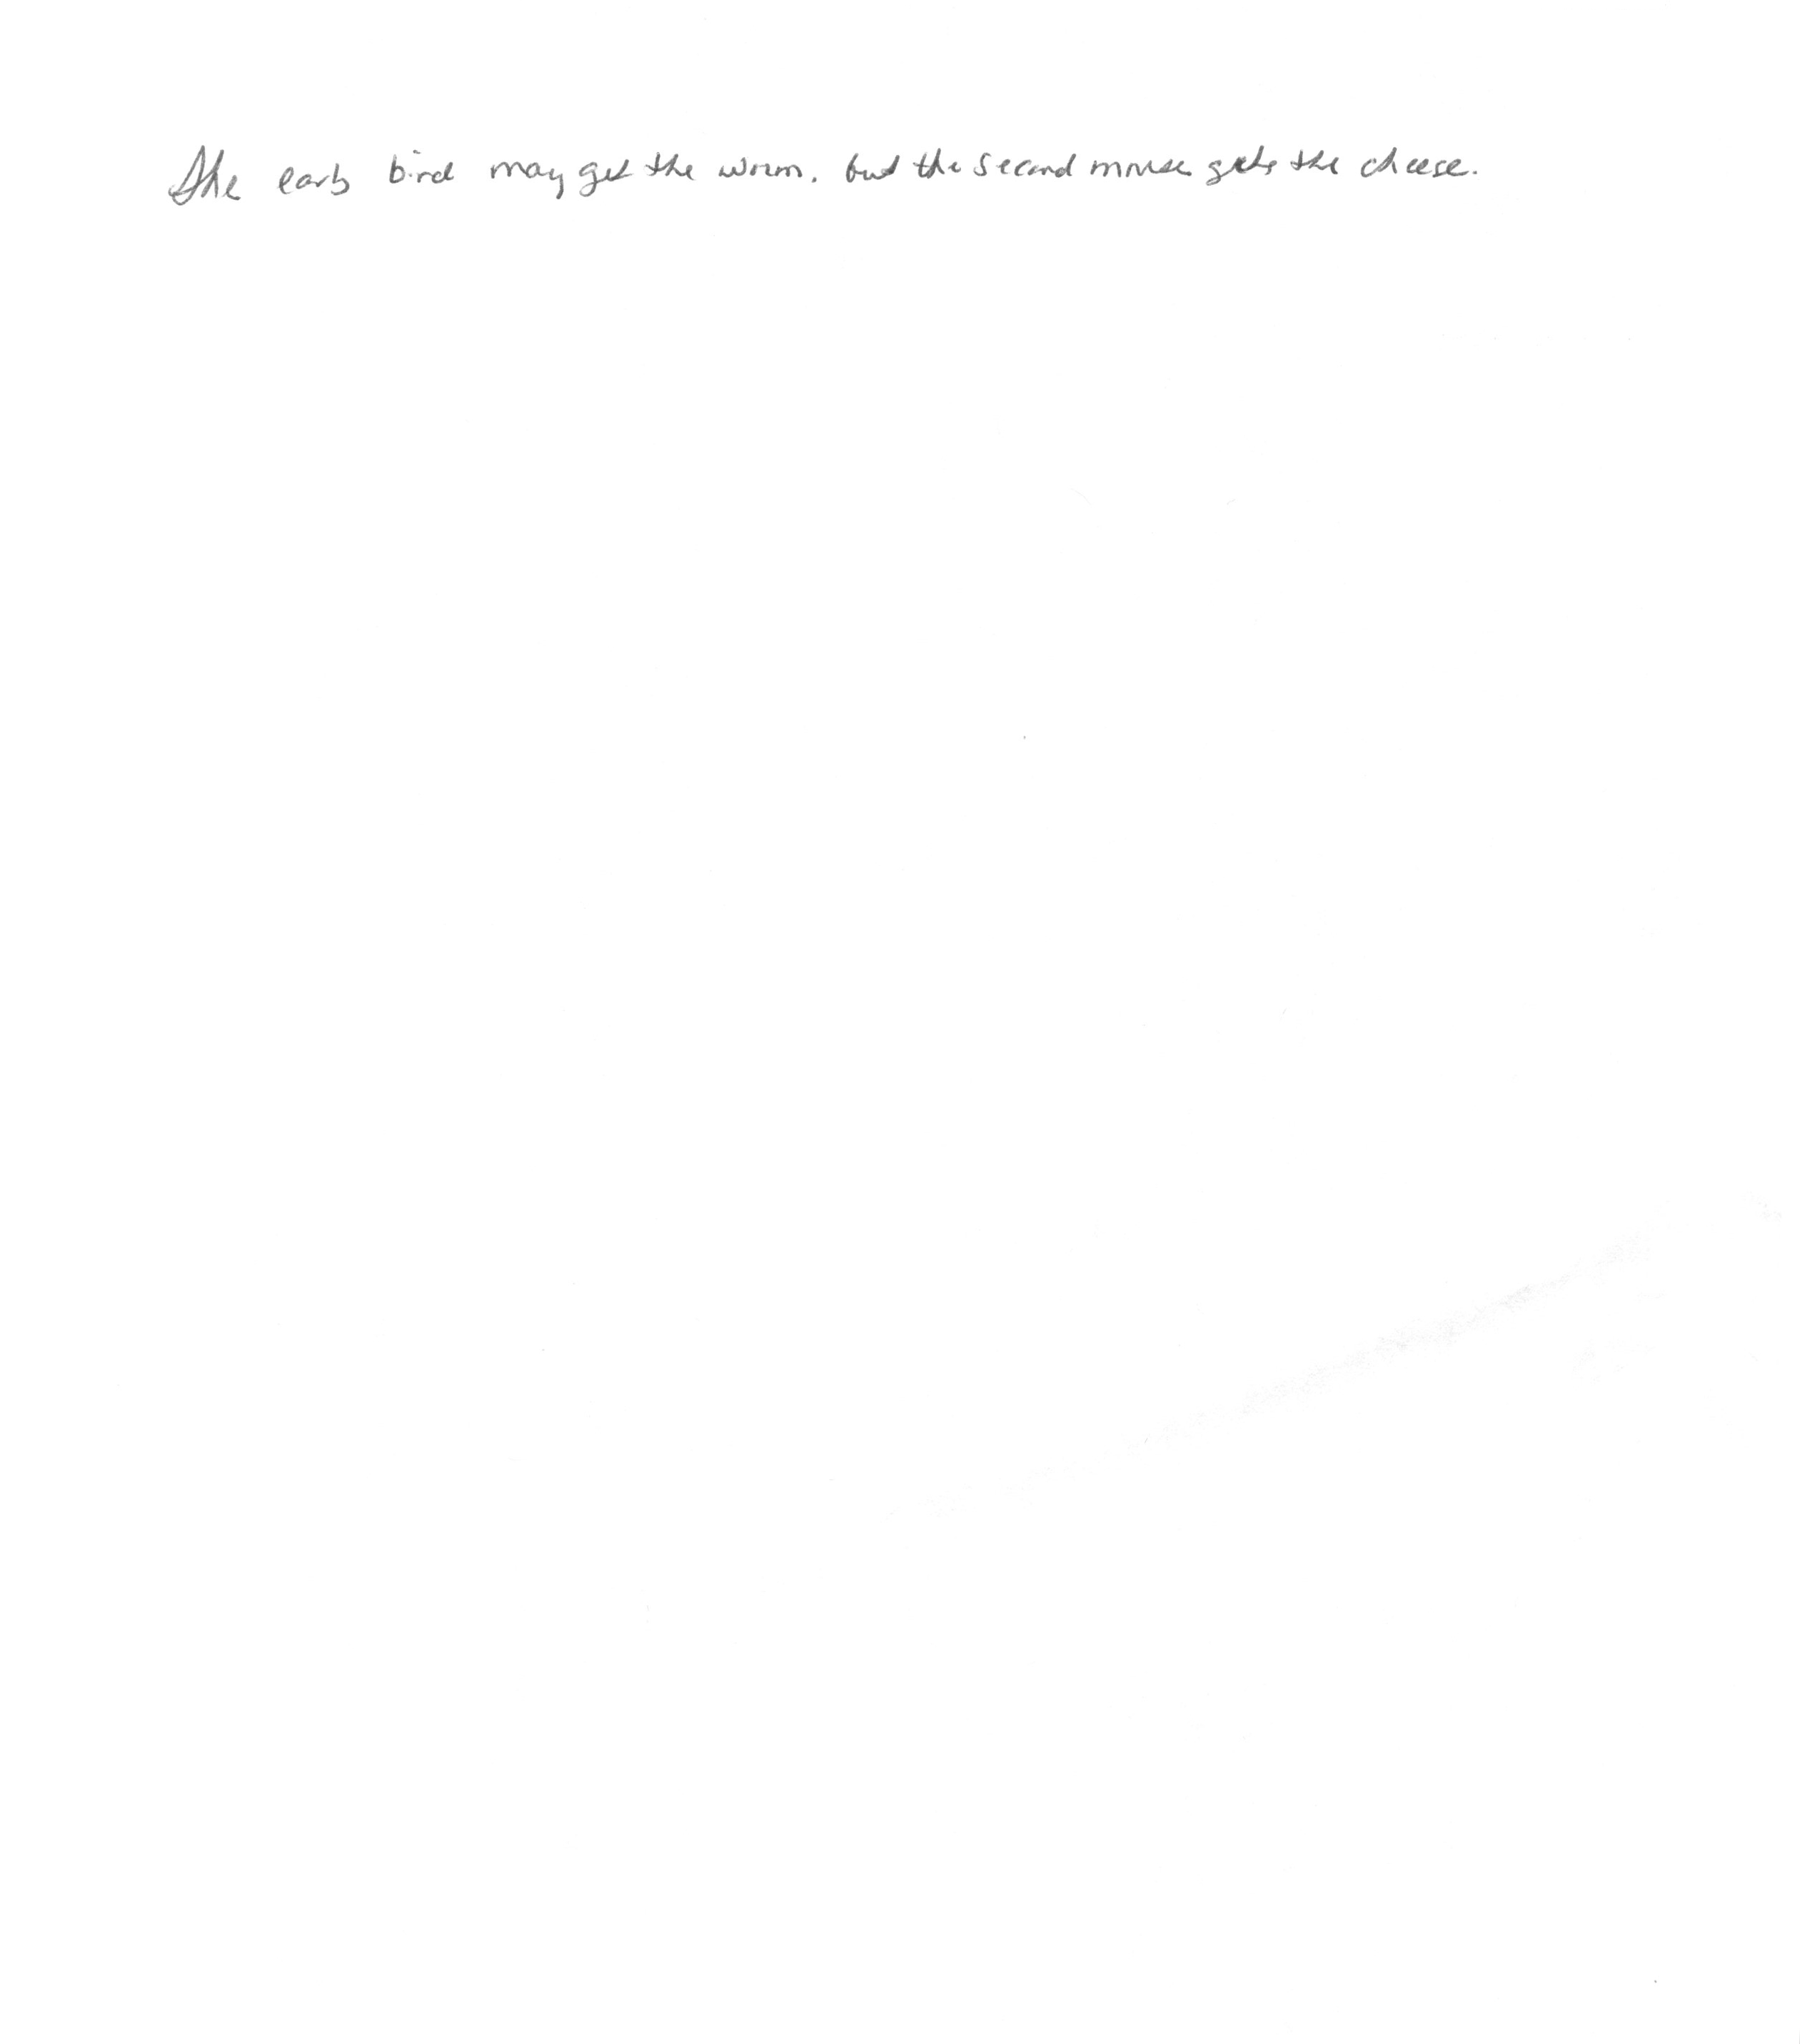 The early bird may get the worm. but the second mouse gets the cheese.